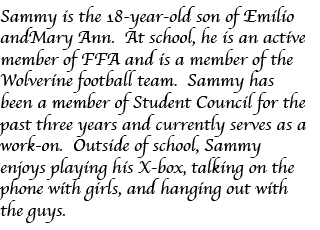 Sammy is the 18-year-old son of Emilio
andMary Ann.  At school, he is an active
member of FFA and is a member of the
Wolverine football team.  Sammy has
been a member of Student Council for the
past three years and currently serves as a
work-on.  Outside of school, Sammy
enjoys playing his X-box, talking on the
phone with girls, and hanging out with
the guys.